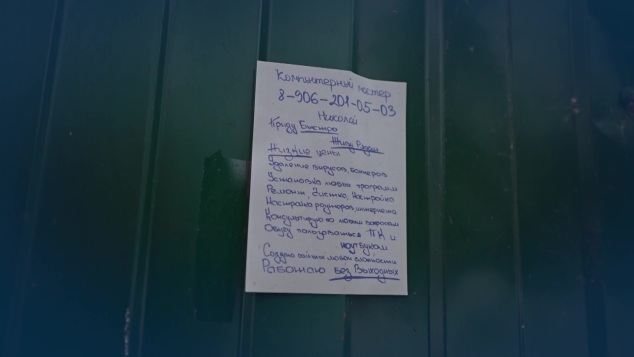 Компьютерный мастер
8-906-201-05-03
Николай
Приду Быстро
Живу Рядом
Низкие цены
Удаление вирусов, баннеров
Установка любых программ
Ремонт, Чистка, Настройка
Настройка роутеров, интернета
Консультирую по любым вопросам
Обучу пользоваться ПК и
ноутбуком
Создаю сайты любой сложности
Работаю Без Выходных